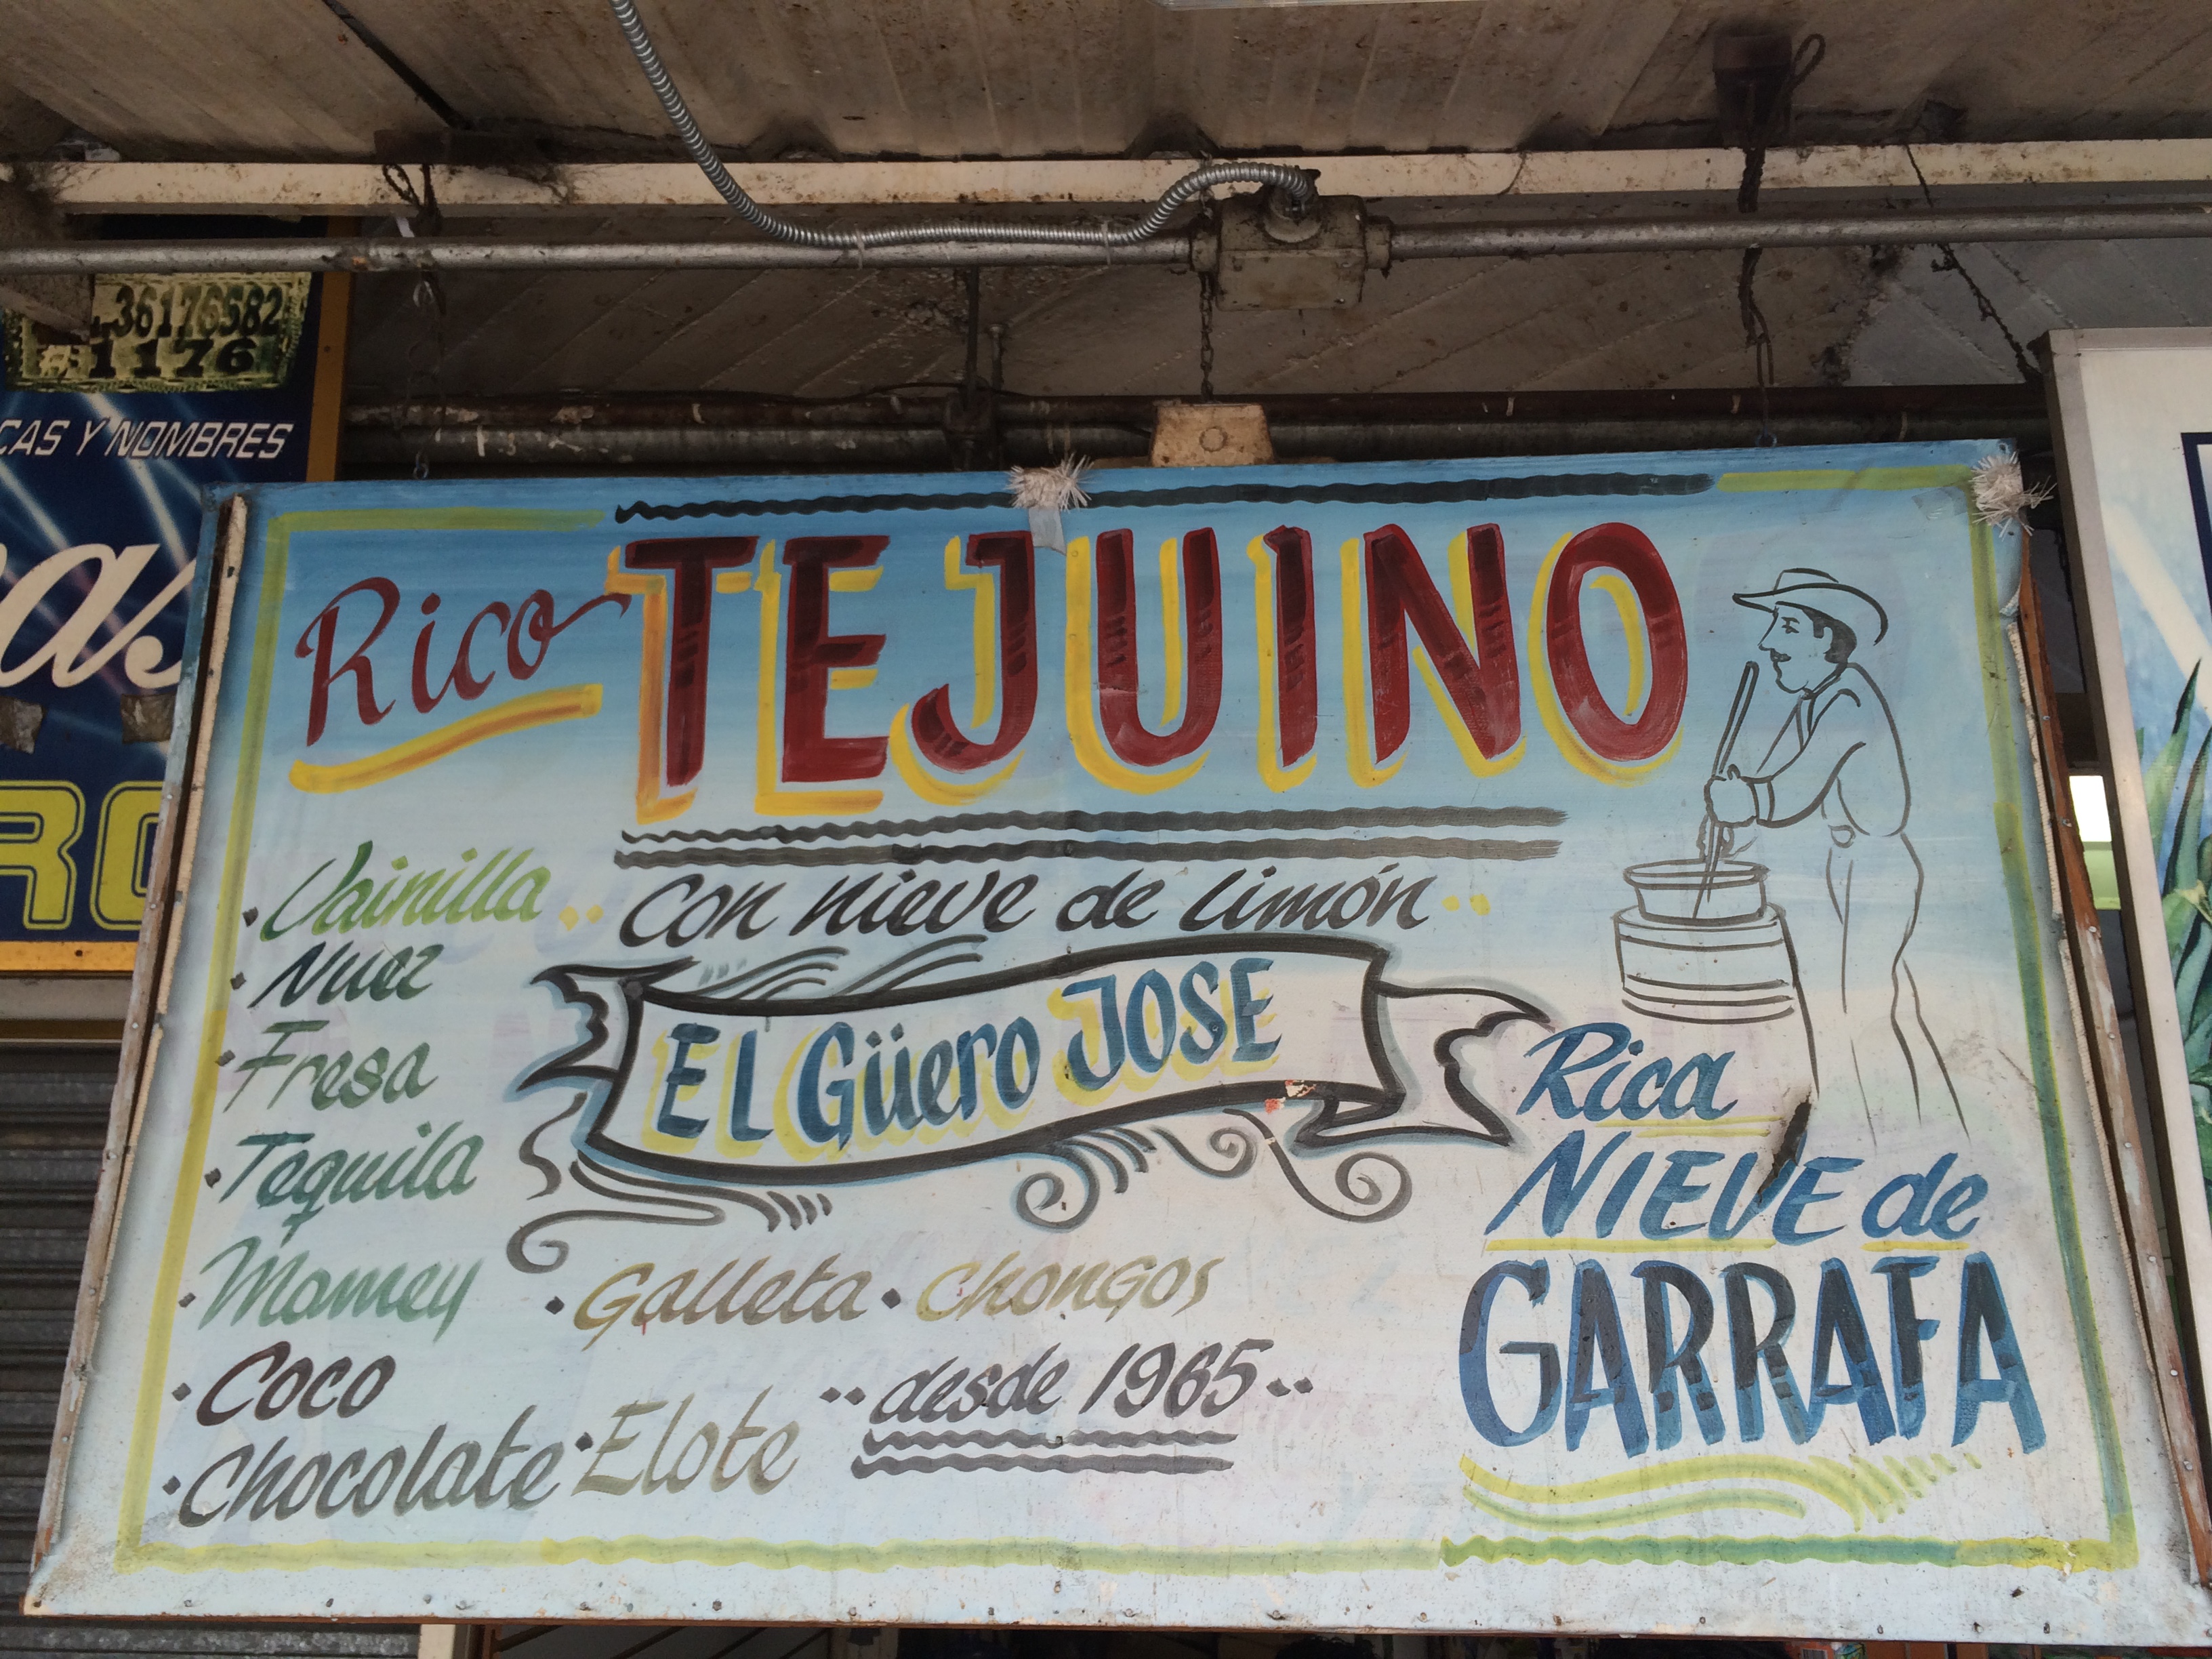 36176582
#1176
CAS Y NOMBRES
as
RO
Rico TEJUINO
con nieve de limón
EL Güero JOSE
• Vainilla
• Nuez
• Fresa
• Tequila
• Mamey
• Coco
• Chocolate • Elote
• Galleta • Chongos
desde 1965
Rica
NIEVE de
GARRAFA